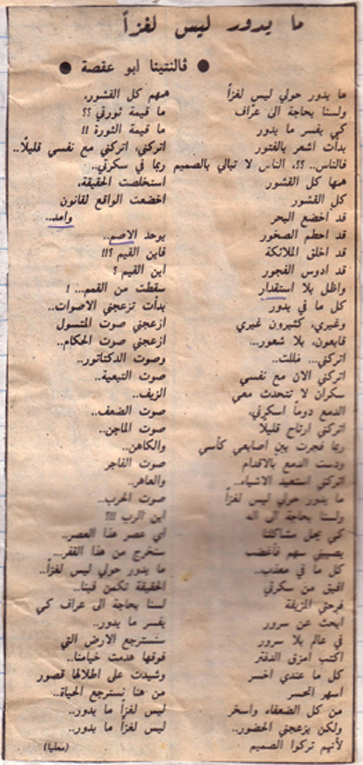 ما يدور ليس لغزاً
● ڤالنتينا ابو عقصة ●
ما يدور حولي ليس لغزاً
ولسنا بحاجة الى عراف
كي يفسر ما يدور
بدأت اشعر بالفتور
فالناس.. ؟؟، الناس لا تبالي بالصميم
همها كل القشور
كل القشور
قد اخضع البحر
قد احطم الصخور
قد اخلق الملائكة
قد ادوس الفجور
واظل بلا استقدار
كل ما في يدور
وغيري، كثيرون غيري
قابعون، بلا شعور...
اتركني... مللت..
اتركني الان مع نفسي
سكران لا تتحدث معي
الدفع دوماً اسكرني،
اتركني ارتاح قليلا
ربما فجرت بين اصابعي كأسي
ودست الدمع بالاقدام
اتركني استعيد الاشياء..
ما يدور حولي ليس لغزاً
ولسنا بحاجة الى اله
كي يحل مشاكلنا
يصيبني سهم فأغضب
كل ما في معذب..
افيق من سكرتي
فرحتي المزيفة
ابحث عن سرور
في عالم بلا سرور
اكتب امزق الدفتر
كل ما عندي اخسر
اسهر اخسر
من كل الضعفاء واسخر
ولكن يزعجني الحضور..
لأنهم تركوا الصميم
همهم كل القشور،
ما قيمة ثورتي ؟؟
ما قيمة الثورة !!
اتركني، اتركني مع نفسي قليلاً..
ربما في سكرتي..
استخلصت الحقيقة،
اخضعت الواقع لقانون
واحد..
يوحد الاصم..
فاين القيم ؟!!
اين القيم ؟
سقطت من القمم... !
بدأت تزعجني الاصوات..
ازعجني صوت المتسول
ازعجني صوت الحكام..
وصوت الدكتاتور..
صوت التبعية..
الزيف..
صوت الضعف..
صوت الماجن..
والكاهن..
صوت الفاجر
والعاهر..
صوت الحرب..
اين الرب !!!
اي عصر هذا العصر..
سنخرج من هذا القفر...
ما يدور حولي ليس لغزاً..
الحقيقة تكمن فينا..
لسنا بحاجة الى عراف كي
يفسر ما يدور..
سنسترجع الارض التي
فوقها هدمت خيامنا..
وشيدت على اطلالها قصور
من هنا نسترجع الحياة..
ليس لغزاً ما يدور..
ليس لغزاً ما يدور..
(معليا)